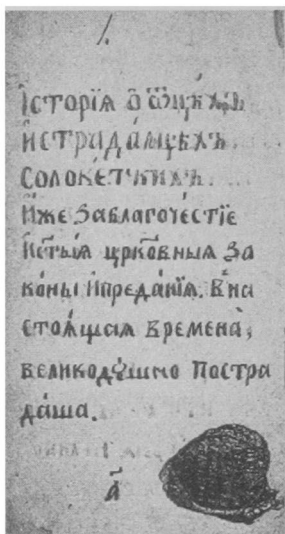 Їсторїѧ ѽ ѿц҃ѣхъ
и҆страда́лцѣхъ
соловє́тчкихъ.
И҆́же заблагоче́стїе
и҆ст҃ы́ѧ цр҃ко́вныѧ за
ко́ны и҆преда́нїѧ. в̾на
стоѧ́щаѧ времена̀,
великодꙋ́шно постра
да́ша.
а҃